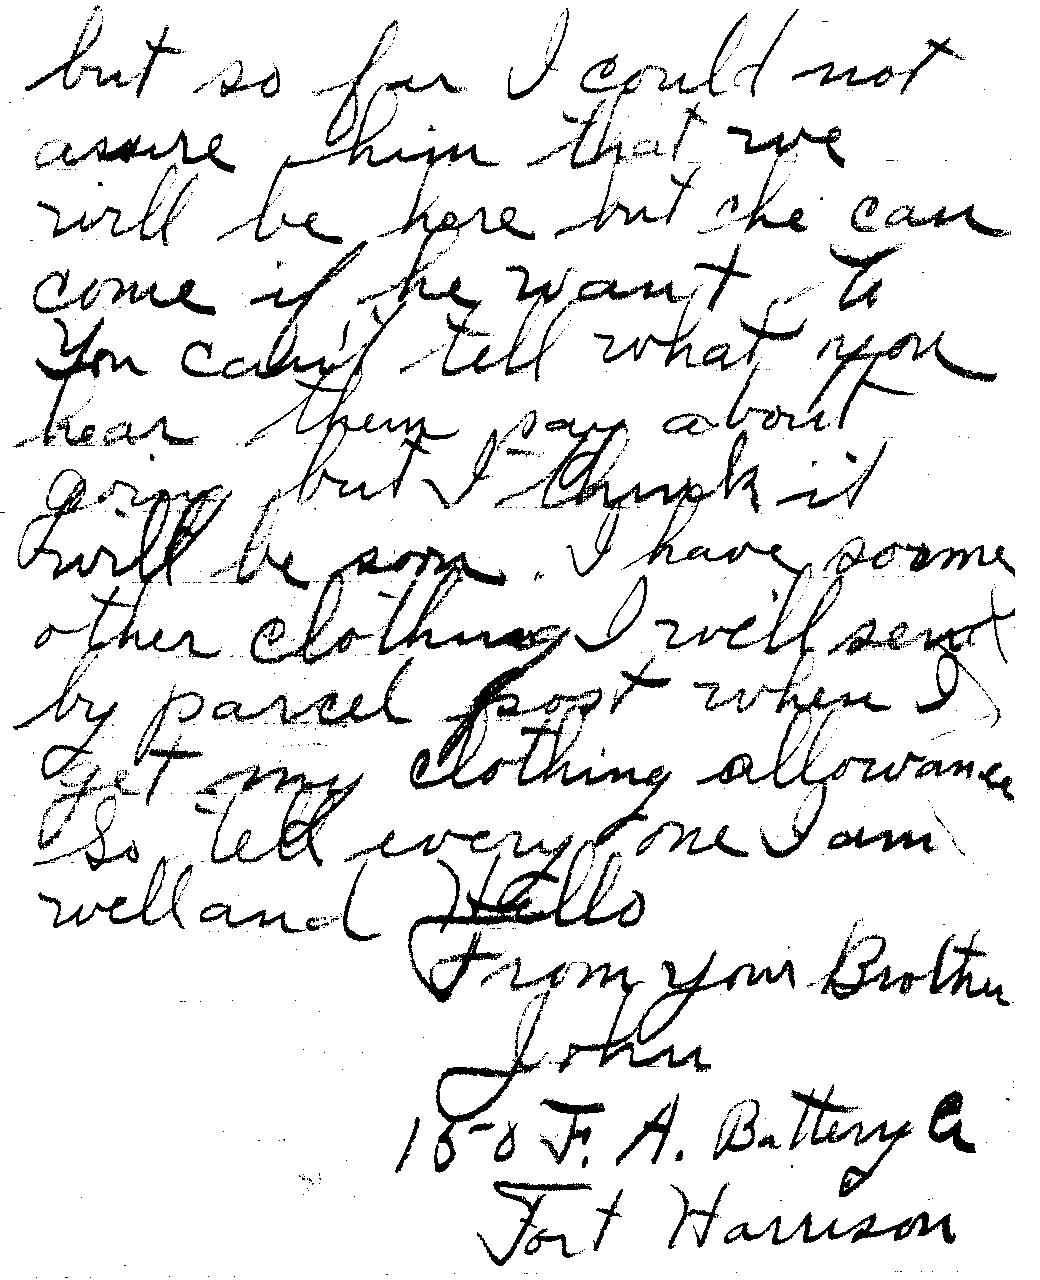 but so far I could not
assure him that we
will be here but he can
come if he want to
You can't tell what you
hear them say about
going but I think it
will be soon. I have some
other clothing I will send
by parcel post when I
get my clothing allowance
So tell every one I am
well and Hello
From your Brother
John
150 F. A. Battery A
Fort Harrison